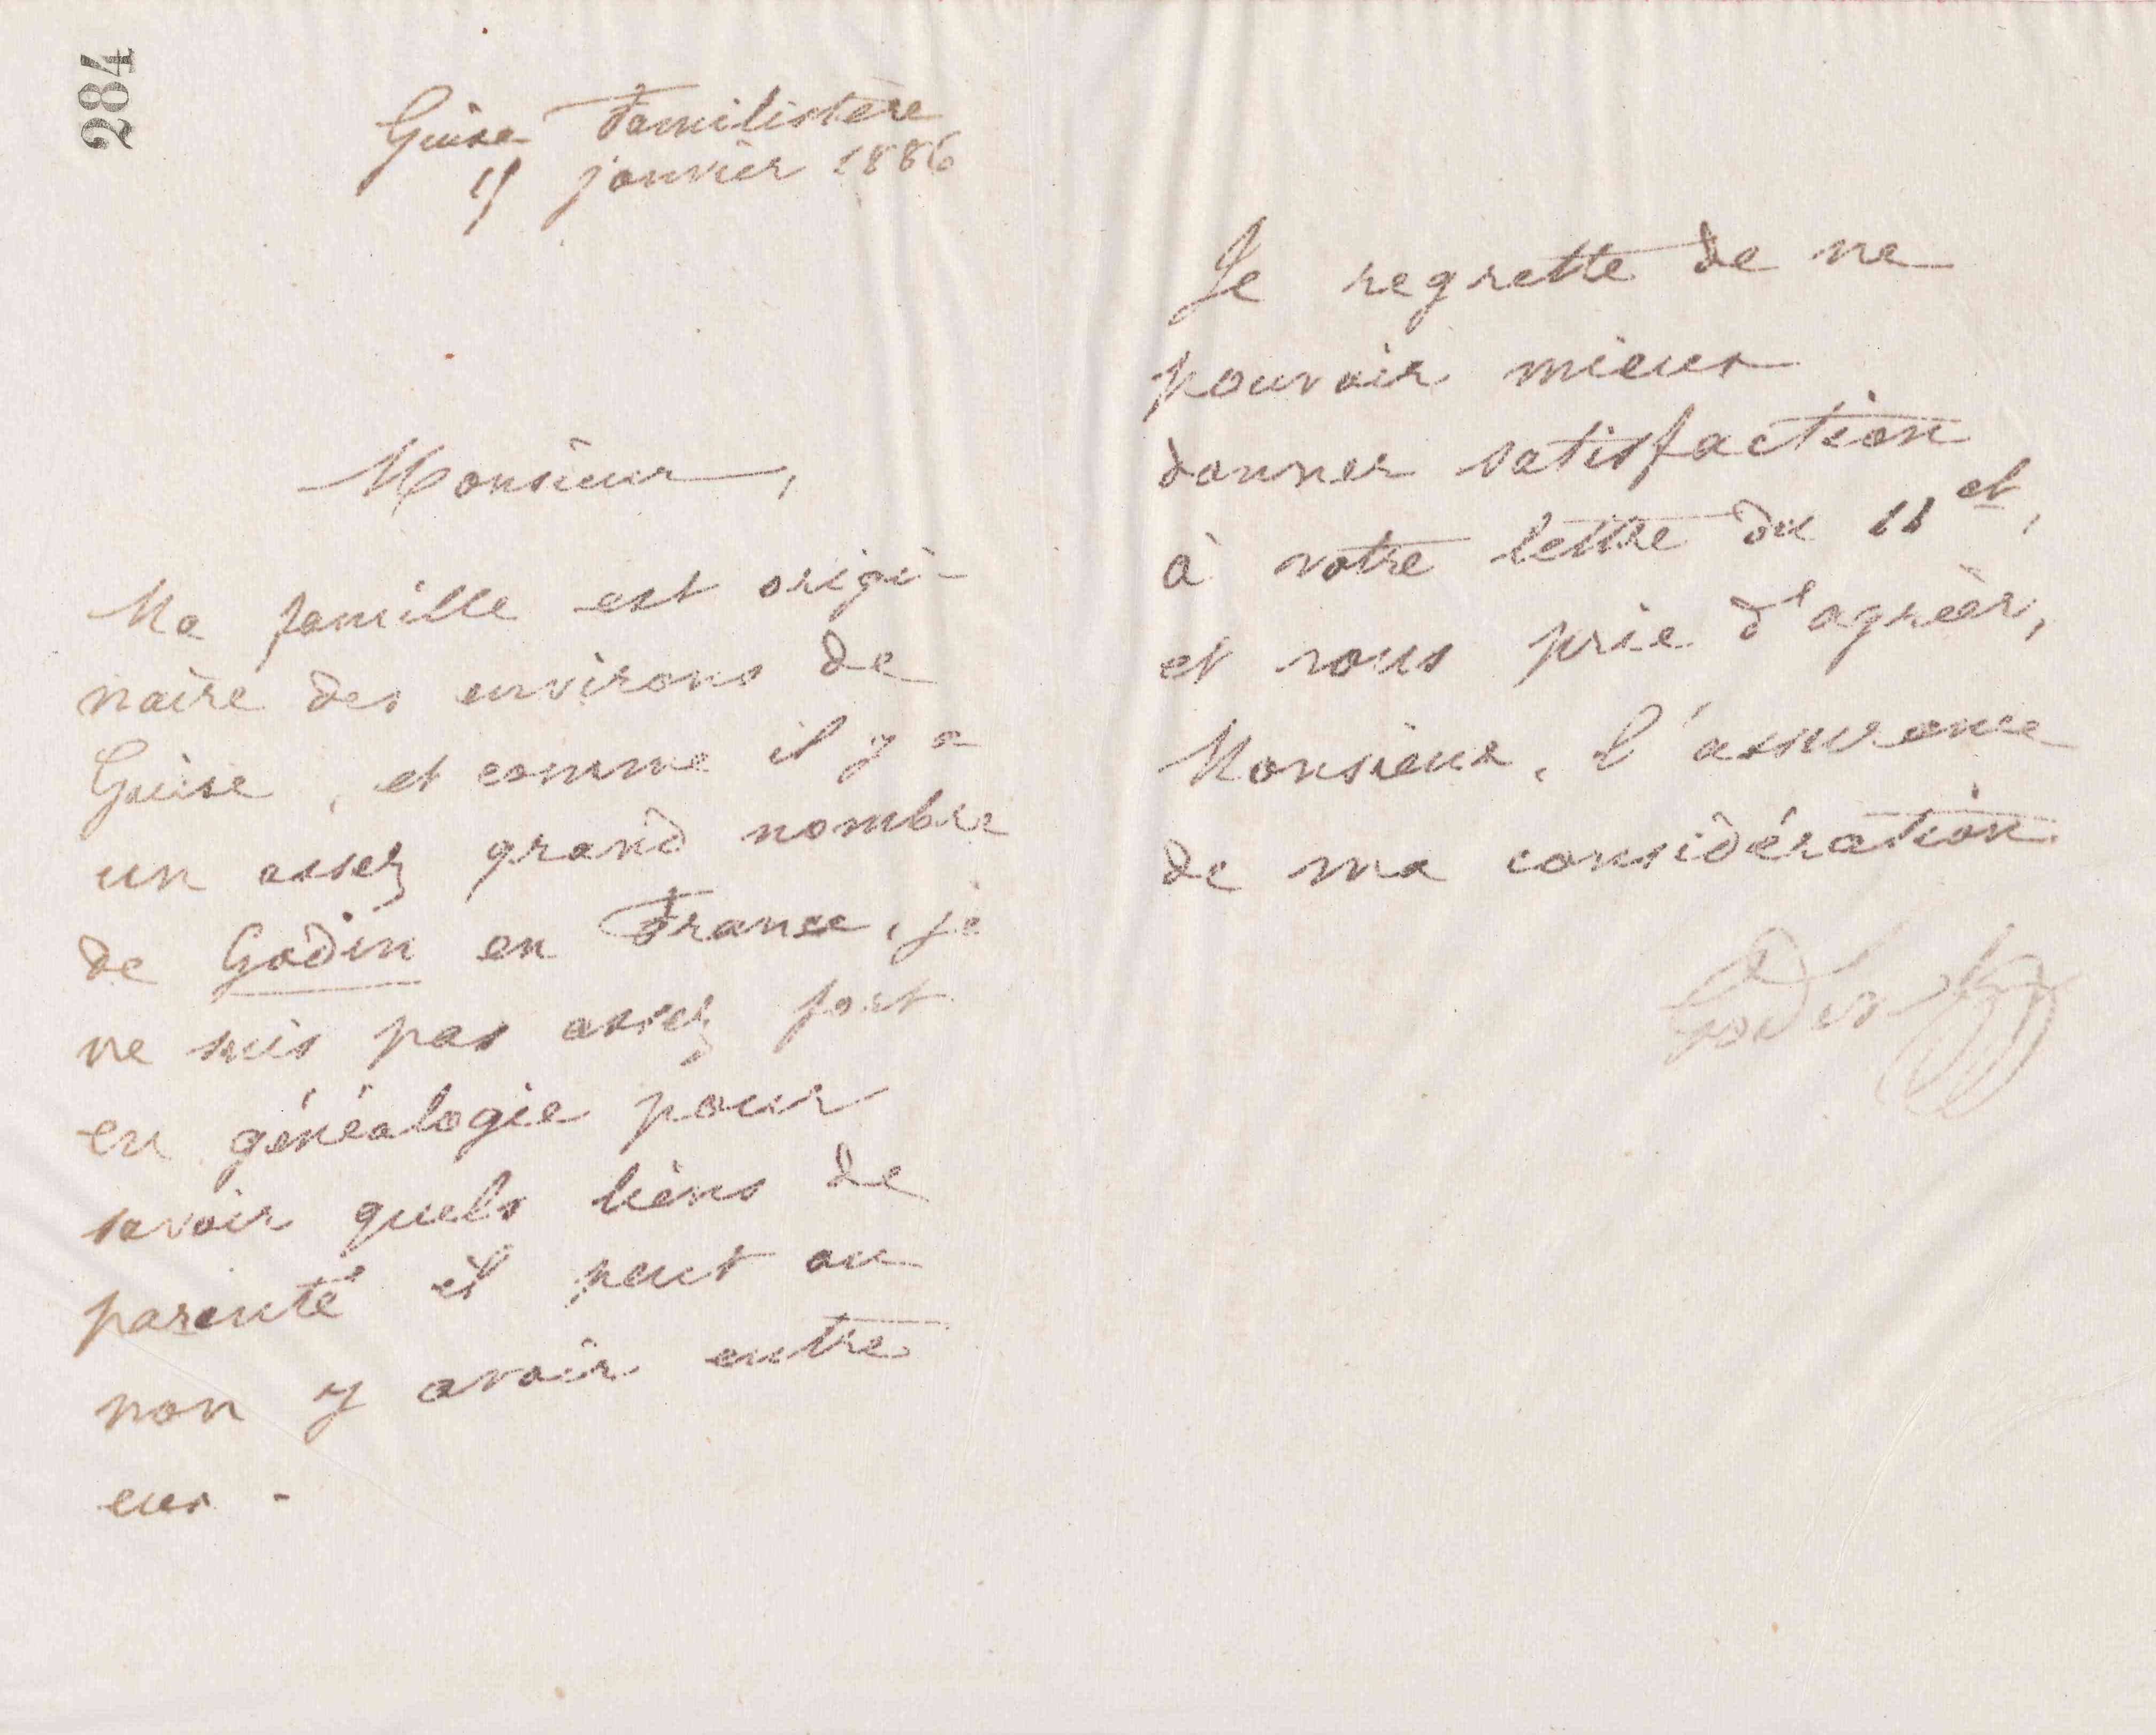 284
Guise Familistère
15 janvier 1886
Monsieur,
Ma famille est origi-
naire des environs de
Guise, et comme il y a
un assez grand nombre
de Godin en France, je
ne suis pas assez fort
en généalogie pour
savoir quels liens de
parenté il peut ou
non y avoir entre
eux.
Je regrette de ne
pouvoir mieux
donner satisfaction
à votre lettre du 11 ct,
et vous prie d'agréer,
Monsieur, l'assurance
de ma considération.
Godin